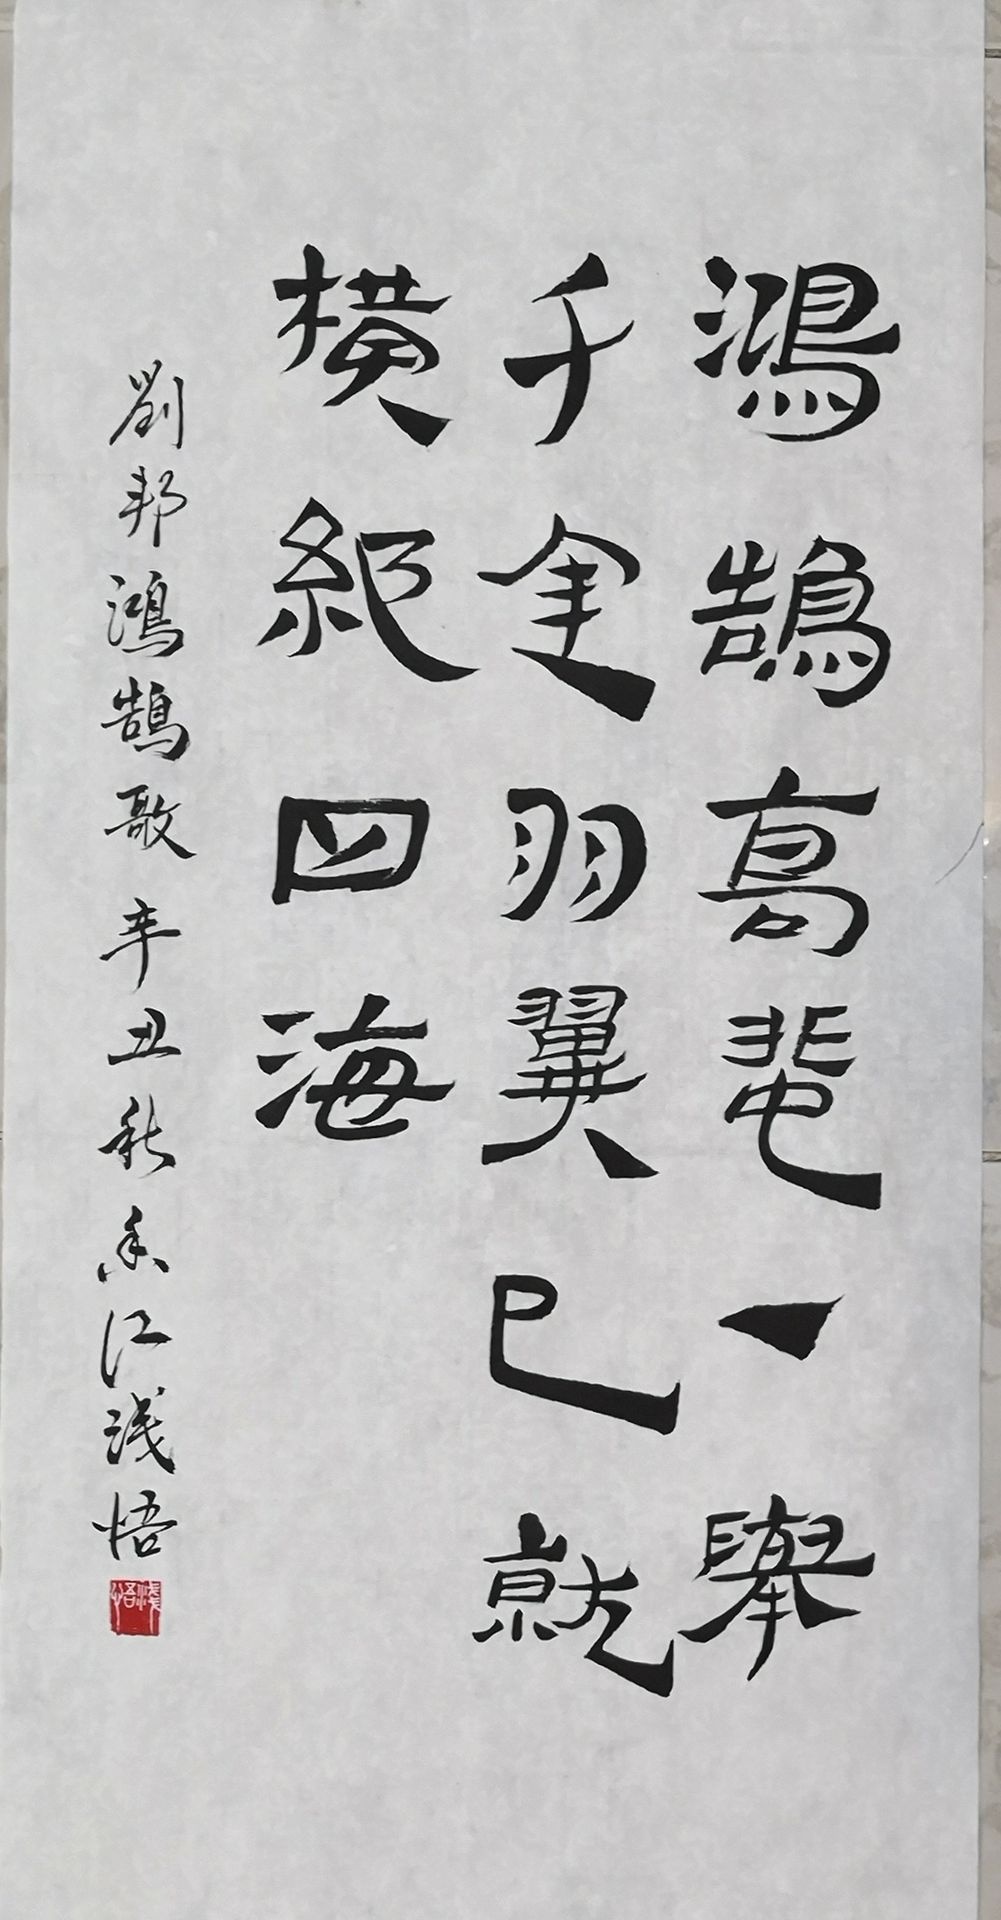 鴻鵠高蜚一舉
千里羽翼已就
橫絕四海
劉邦鴻鵠歌辛丑秋香江浅悟
浅悟